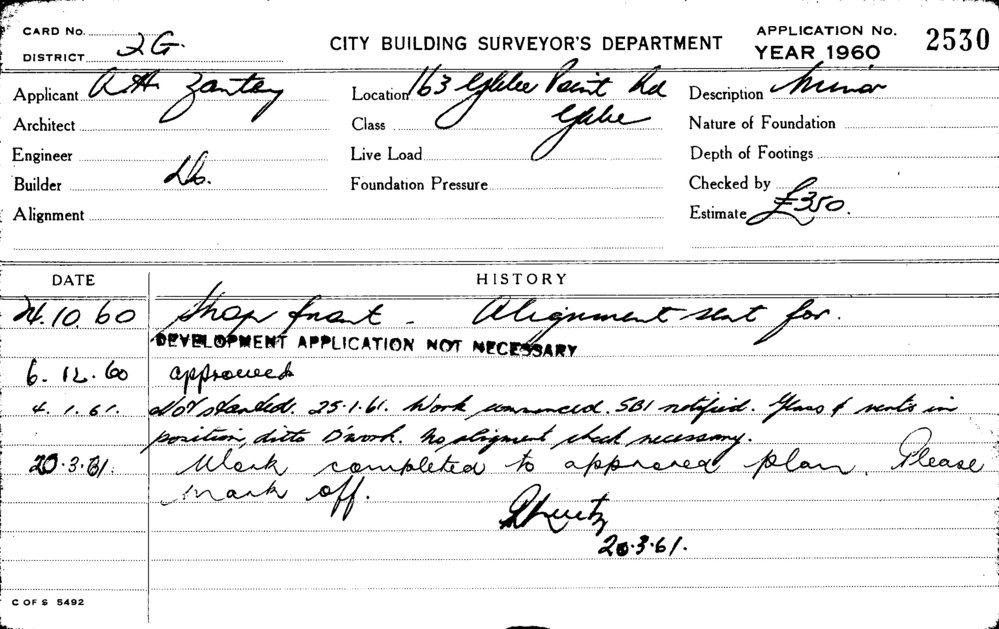 CARD No.
DISTRICT 2G.
CITY BUILDING SURVEYOR'S DEPARTMENT
APPLICATION No. 2530
YEAR 1960
Applicant A.H. Zantey
Location 163 Glebe Point Rd Glebe
Description Minor
Architect
Class
Nature of Foundation
Engineer
Live Load
Depth of Footings
Builder Do.
Foundation Pressure
Checked by
Alignment
Estimate £350.
DATE HISTORY
24.10.60 Shop front - Alignment sent for.
DEVELOPMENT APPLICATION NOT NECESSARY
6.12.60 approved
4.1.61. Not started. 25.1.61. Work commenced. SBI notified. Glass & vents in
position, ditto D'work. No alignment check necessary.
20.3.61. Work completed to approved plan. Please
mark off.
20.3.61.
C OF S 5492